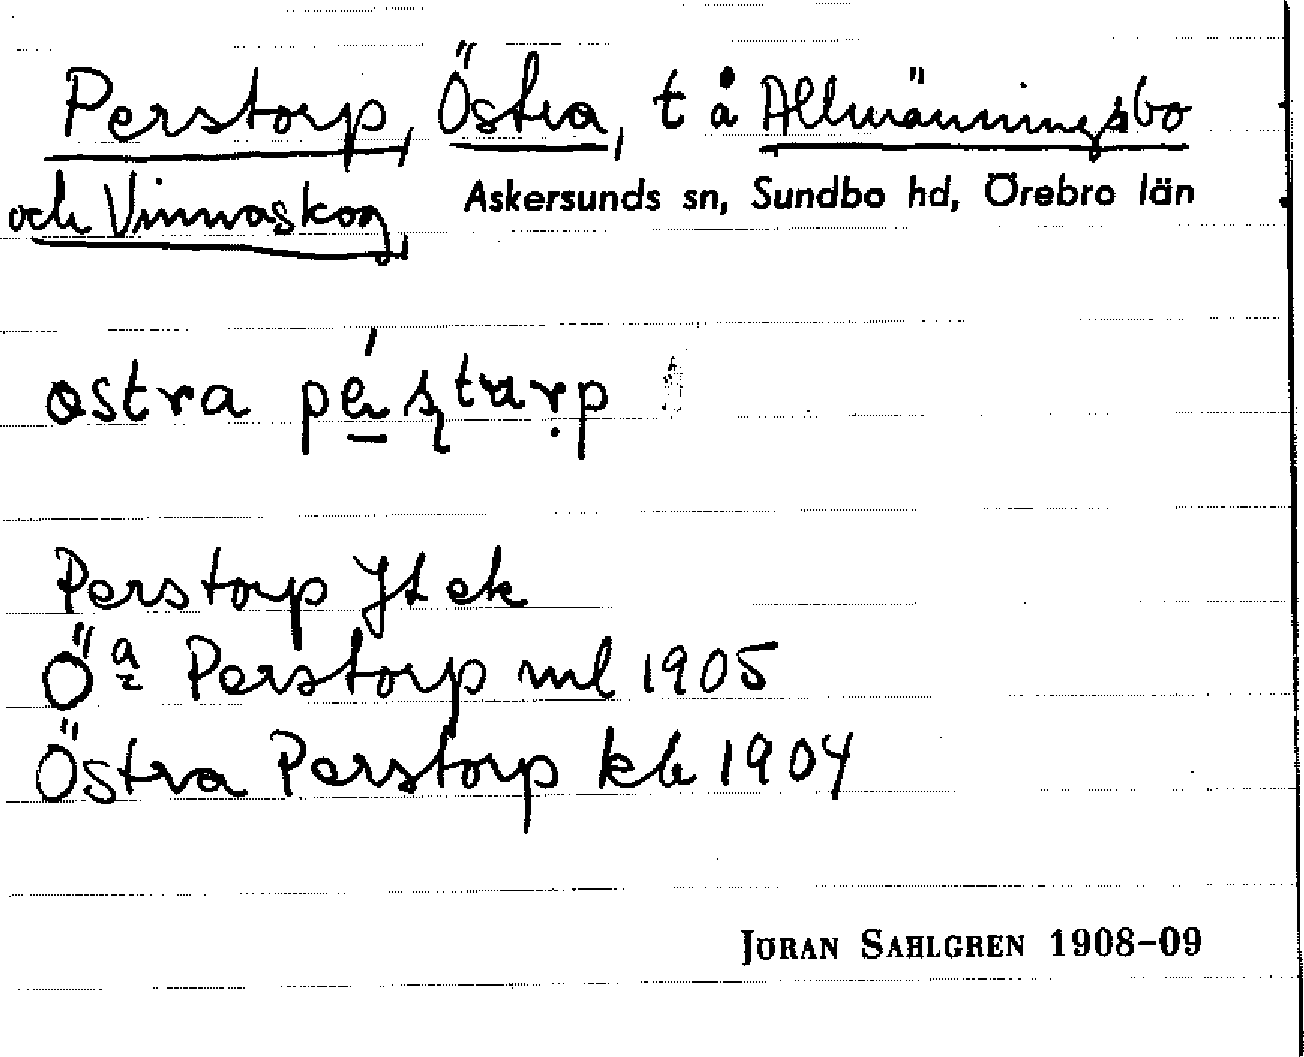 Perstorp, Östra, t å Allmänningsbo
och Vinnaskog, Askersunds sn, Sundbo hd, Örebro län
östra pé̱ʂturp
Perstorp Jt ek
Öᵃ Perstorp ml 1905
Östra Perstorp kb 1904
JÖRAN SAHLGREN 1908-09